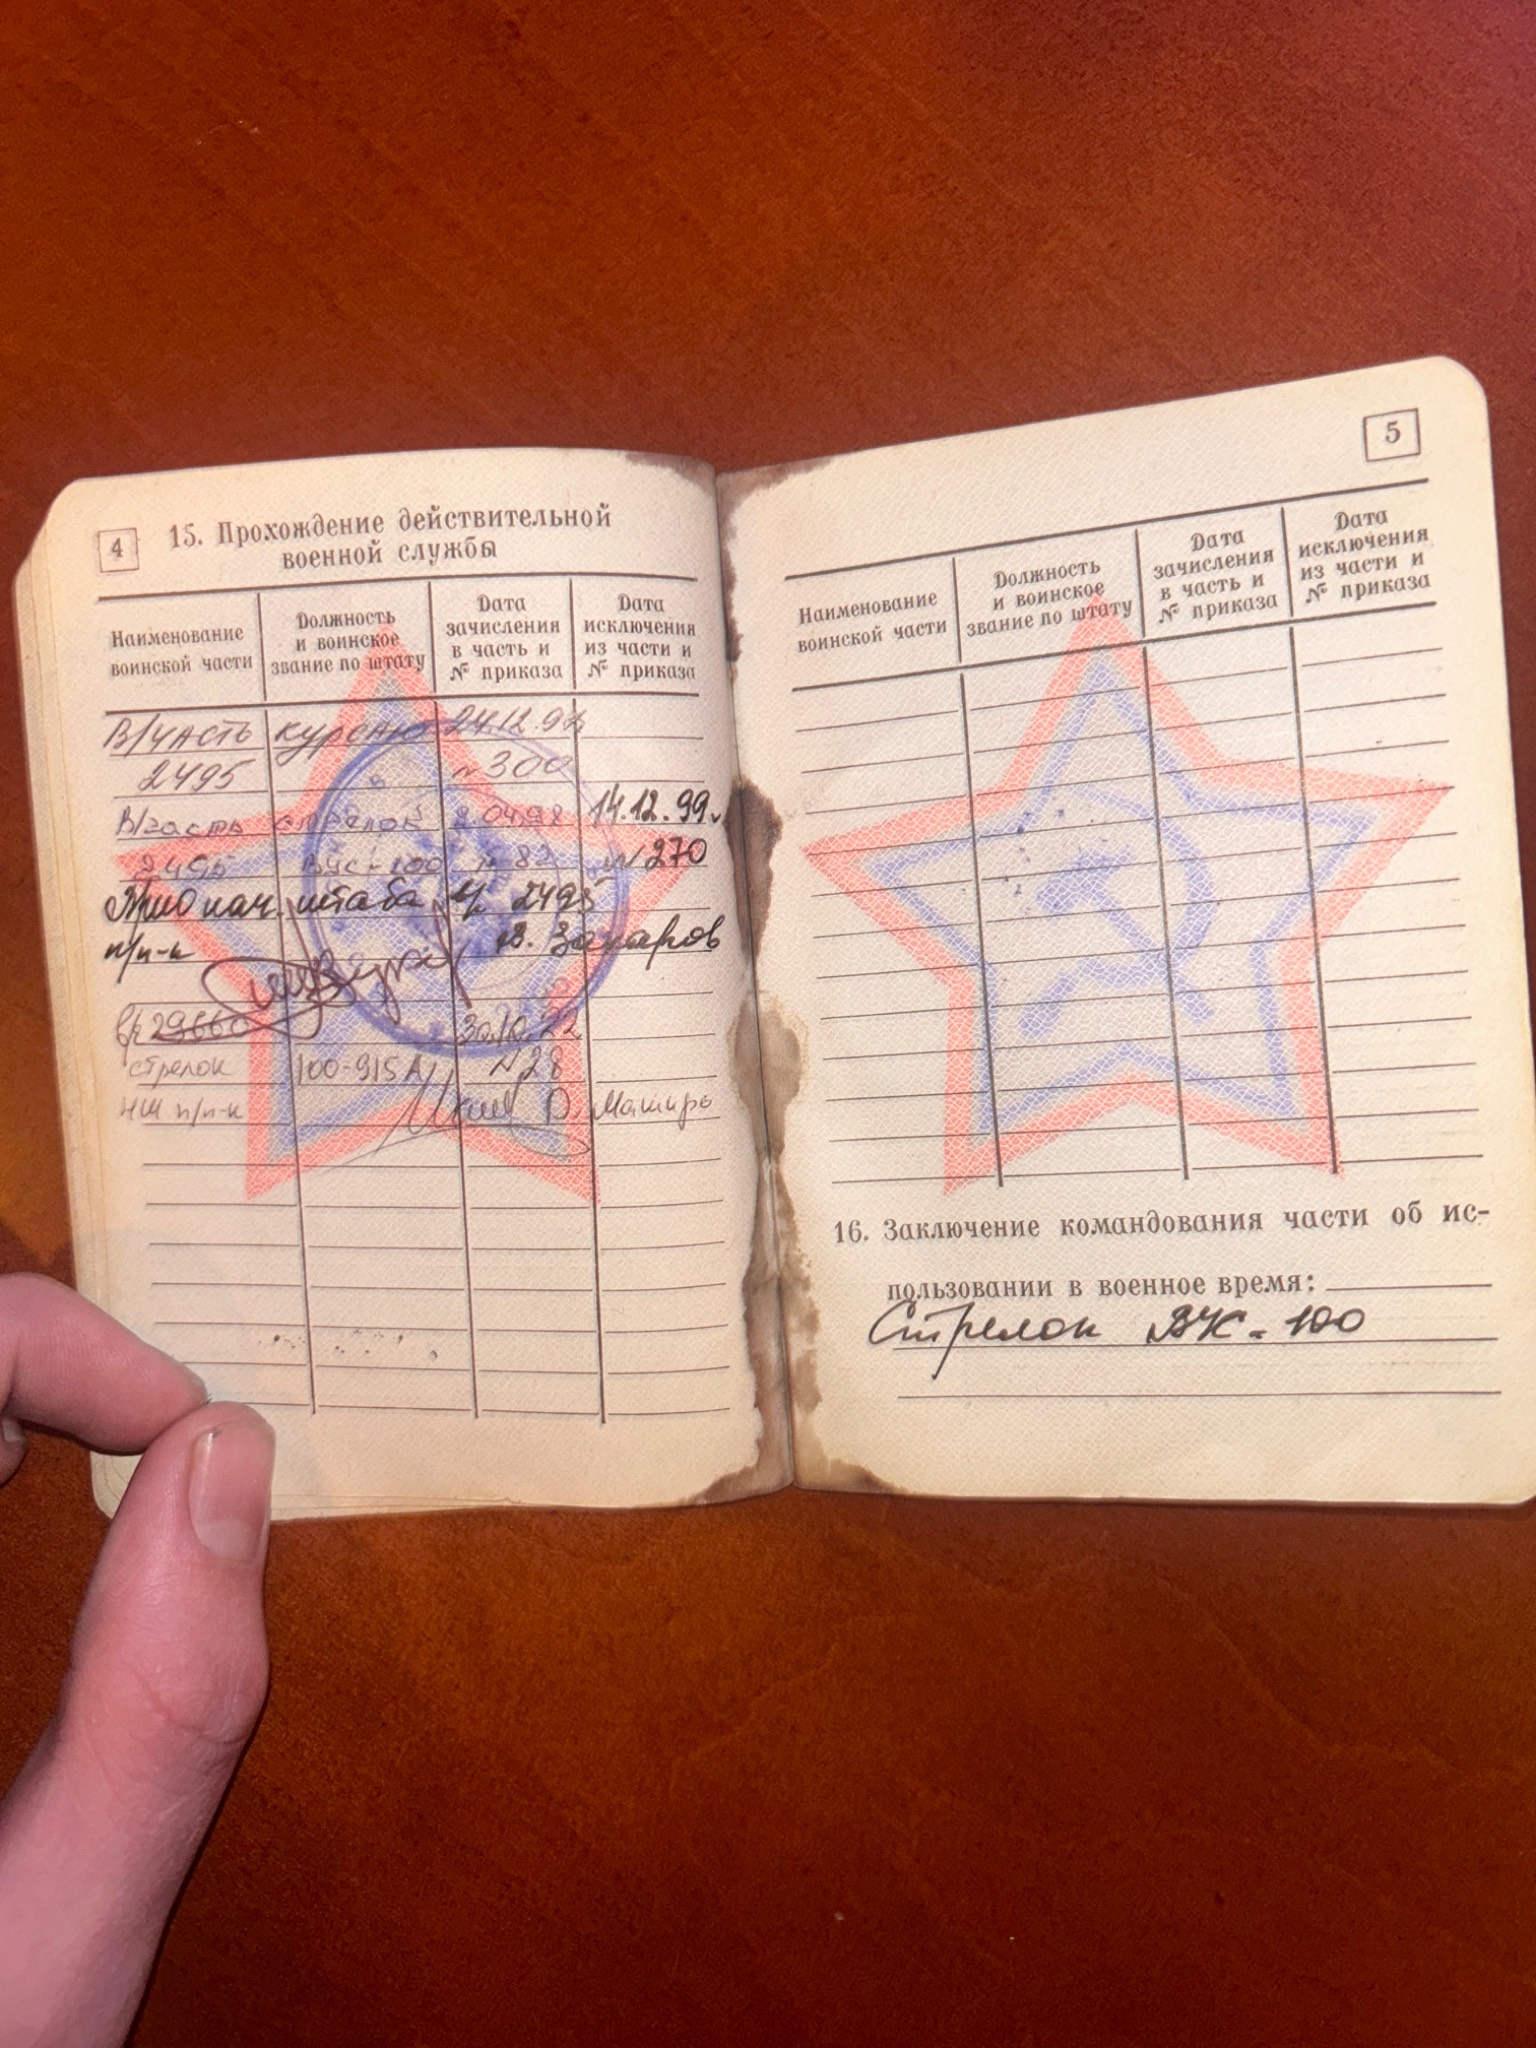 4
15. Прохождение действительной
военной службы
Наименование
воинской части
Должность
и воинское
звание по штату
Дата
зачисления
в часть и
№ приказа
Дата
исключения
из части и
№ приказа
В/часть
24.12.97
2495
№300
В/часть стрелок 14.12.99
2495 ВУС-100 № 82 № 270
нач. штаба 2495
п/п-к В. Захаров
29660 30.10.22
стрелок 100-915А №28
НШ п/п-к
5
Наименование
воинской части
Должность
и воинское
звание по штату
Дата
зачисления
в часть и
№ приказа
Дата
исключения
из части и
№ приказа
16. Заключение командования части об ис-
пользовании в военное время:
Стрелок ВУС-100